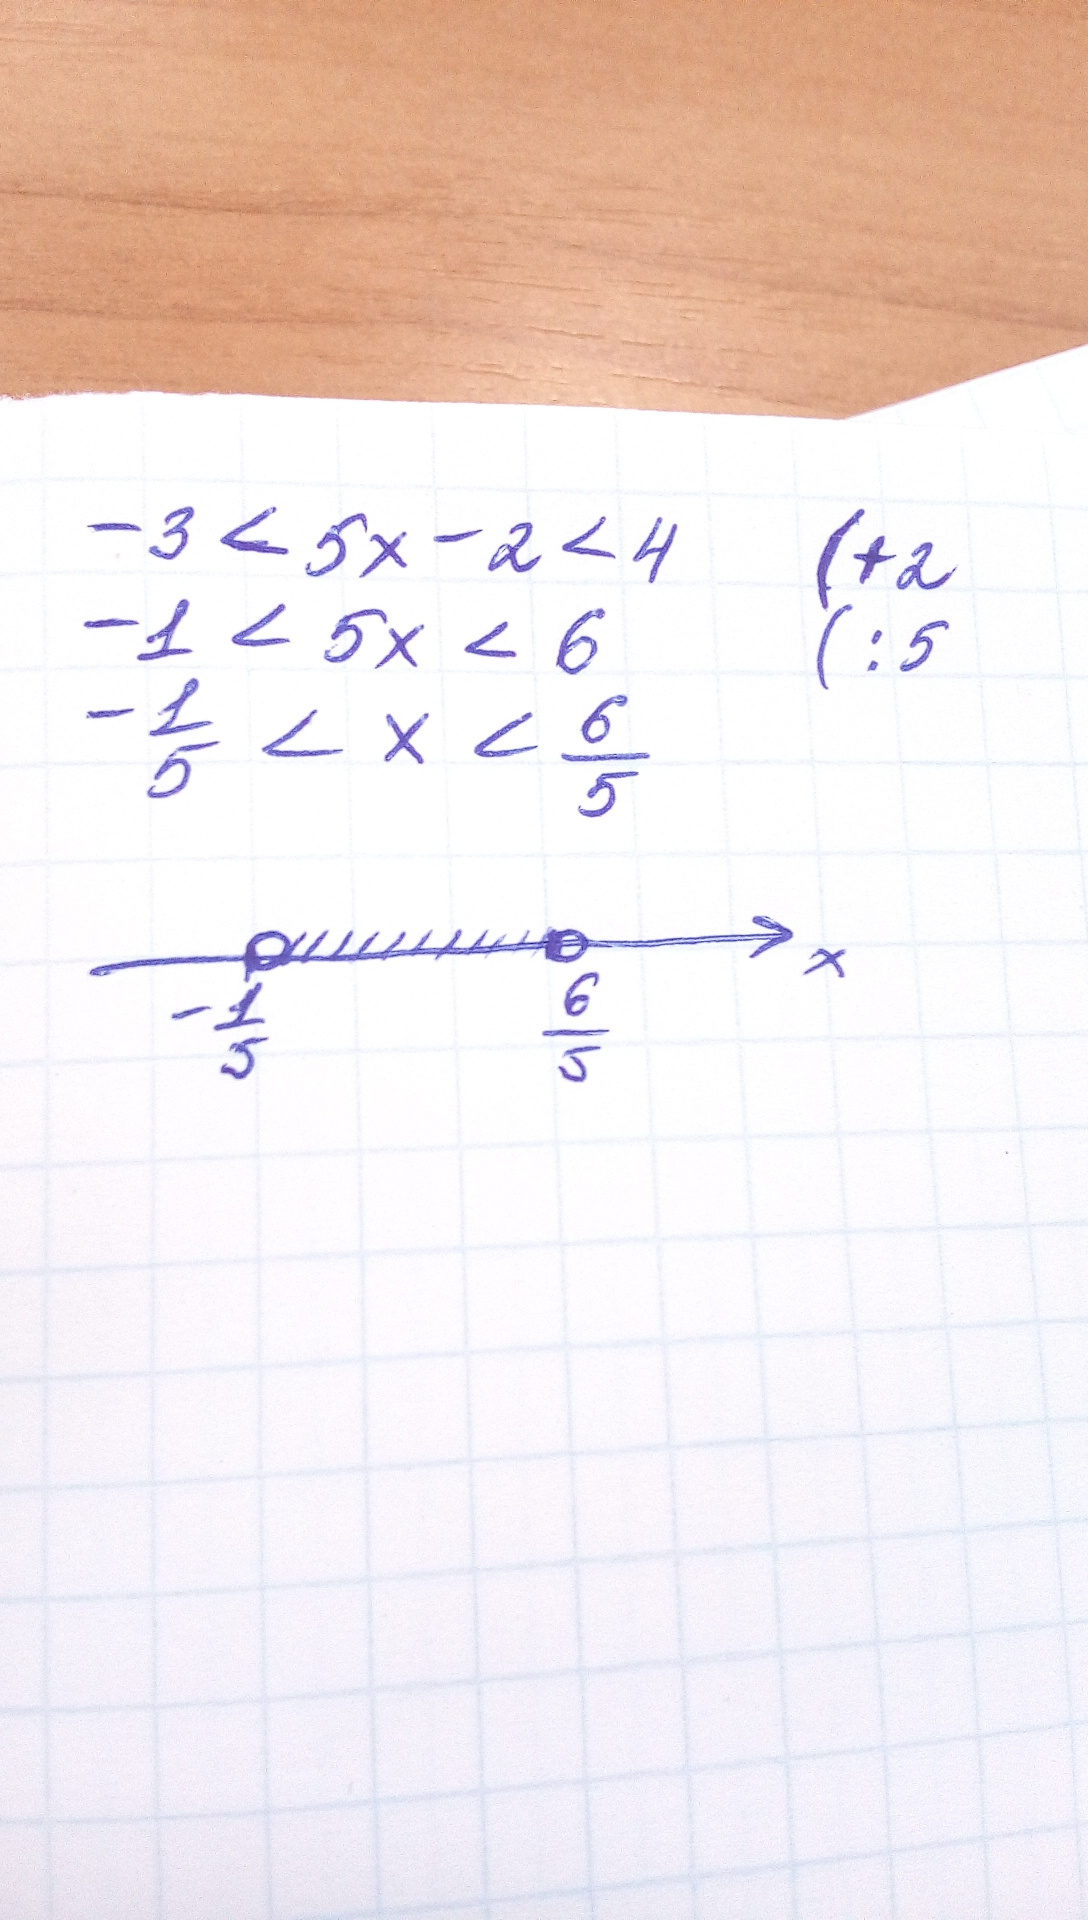 -3 < 5x - 2 < 4 (+2
-1 < 5x < 6 (:5
-1/5 < x < 6/5
x
-1/5 6/5